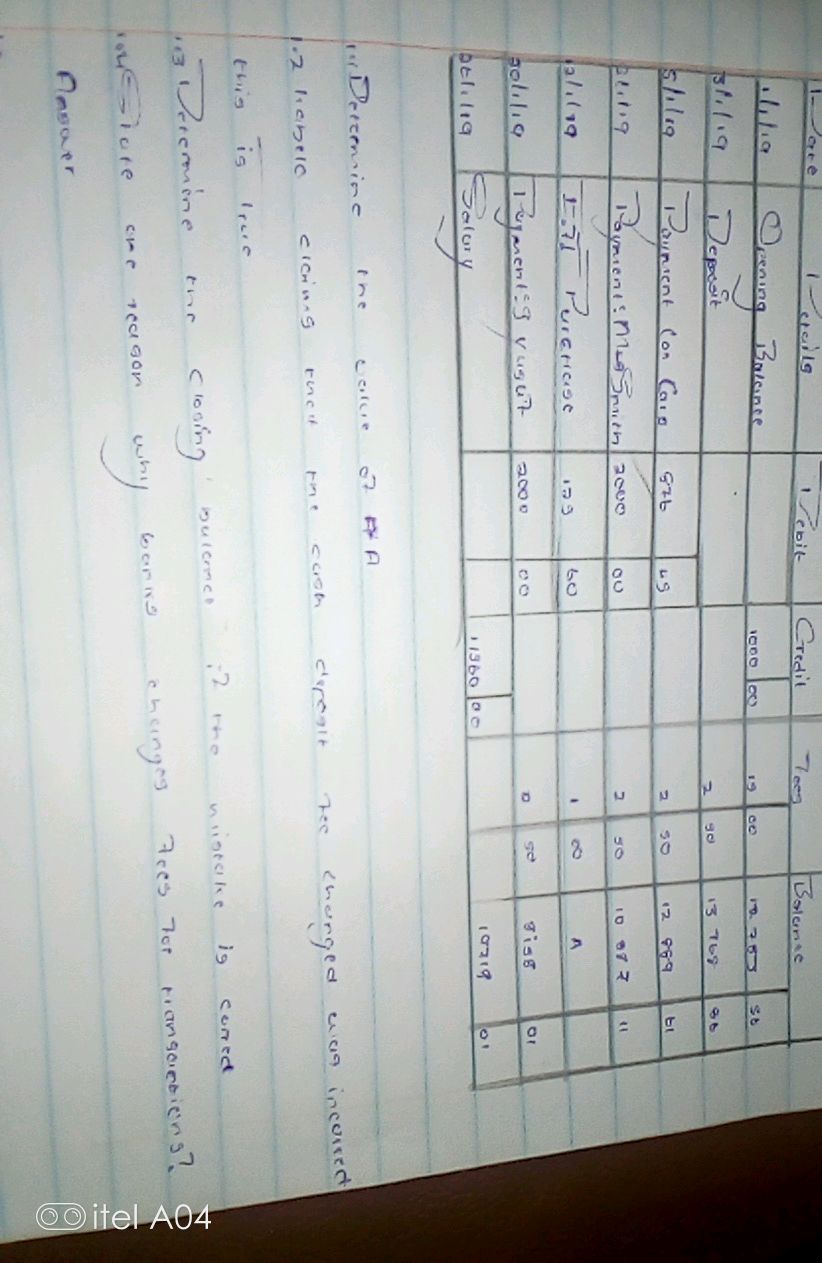 Date Details Debit Credit Fees Balance
1/1/19 Opening Balance 1000 00 19 00
3/1/19 Deposit 2 90 13 768 86
5/1/19 Payment Con Card 876 2 50 12 889 61
Payment: Mr Smith 2000 00 2 50 10 887 11
EFT Purchase 60 1 00 A
20/1/19 Payment: 2000 00 50 8158 01
Salary 11360 00 19719 01
1.1 Determine the value of A
1.2 claims that the cash deposit fee charged was incorrect
this is true
1.3 Determine the closing balance if the mistake is correct
State one reason why banks charges fees for transactions?
Answer
itel A04